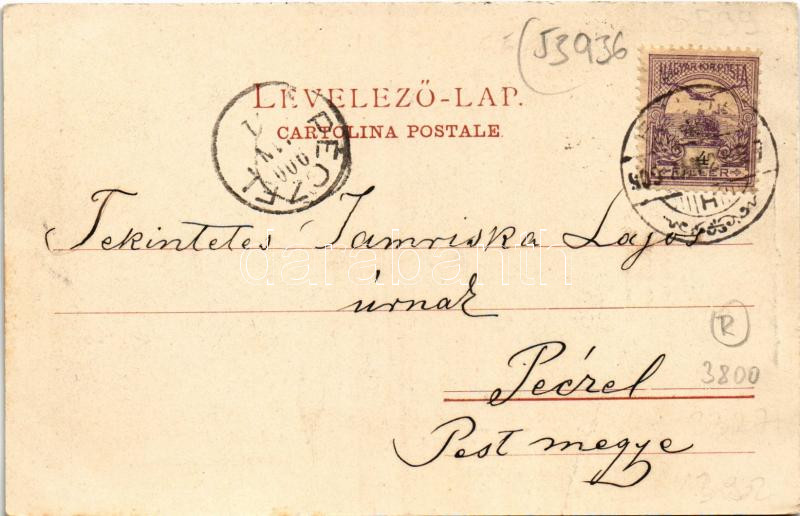 53936
MAGYAR KIR. POSTA
4
FILLÉR
LEVELEZŐ-LAP.
CARTOLINA POSTALE.
PÉCZEL
900
Tekintetes Jamriska Lajos
darabanth
úrnak
R
3800
Péczel
Pest megye